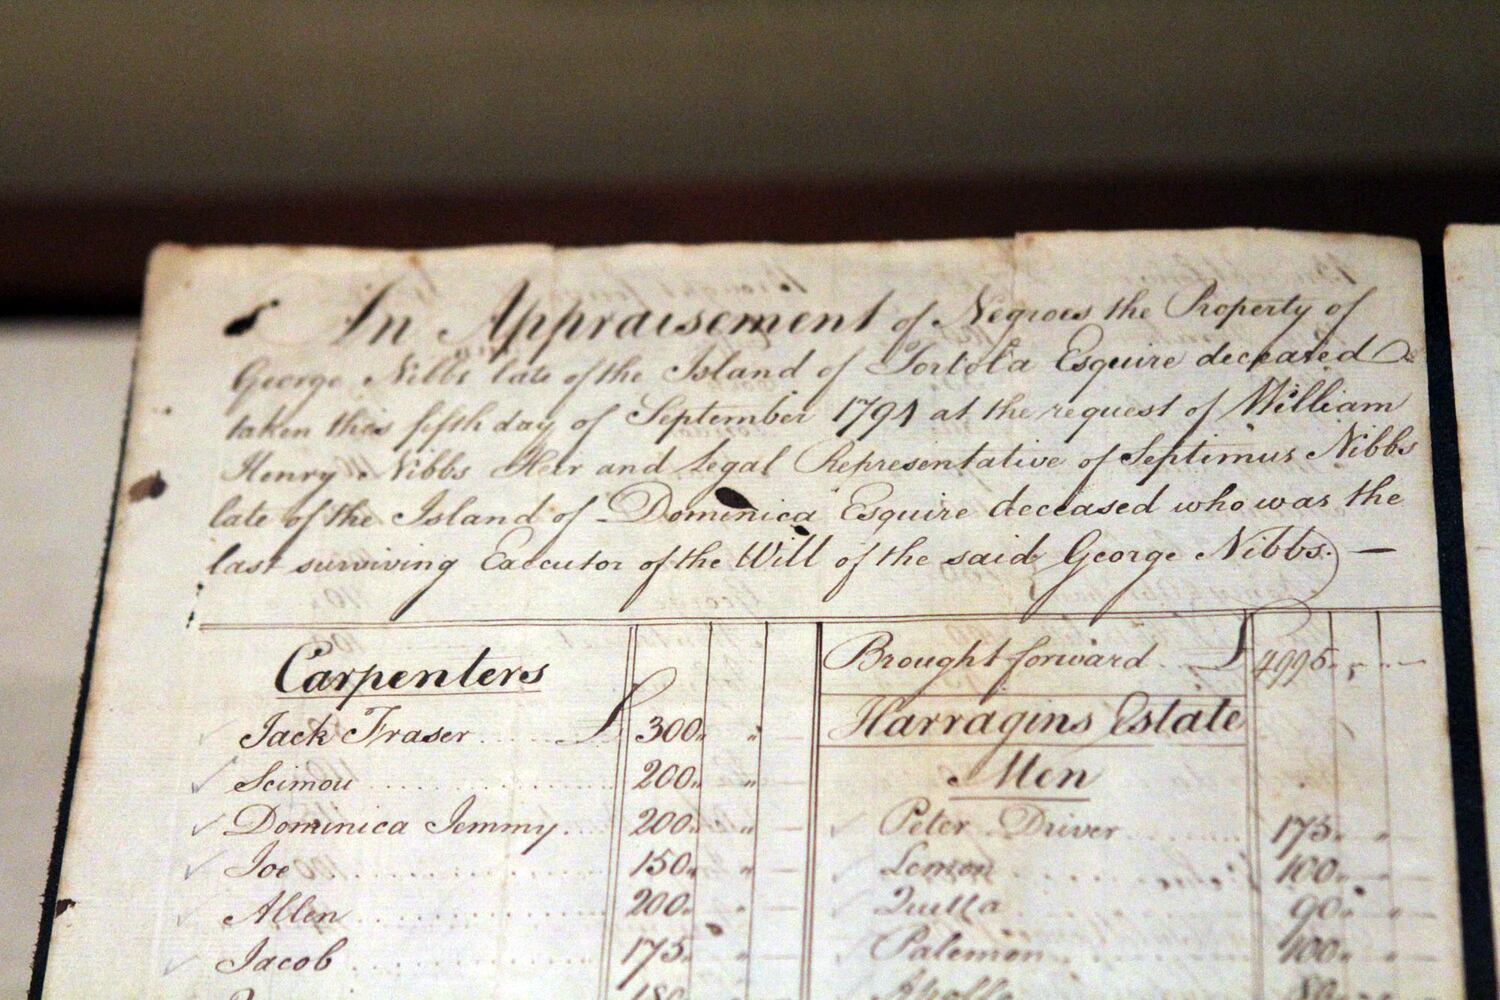 An Appraisement of Negroes the Property of
George Nibbs late of the Island of Tortola Esquire deceased
taken this fifth day of September 1791 at the request of William
Henry Nibbs Heir and Legal Representative of Septimus Nibbs
late of the Island of Dominica Esquire deceased who was the
last surviving Executor of the Will of the said George Nibbs. —
Carpenters
Jack Fraser £ 300 " —
Scimou 200 " —
Dominica Jemmy 200 " —
Joe 150 " —
Allen 200 " —
Jacob 175 " —
180
Brought forward £ 4995 " —
Harragins Estate
Men
Peter Driver 175 " —
Lemon 100 " —
Quitta 90 " —
Palemon 100 " —
Apollo 80